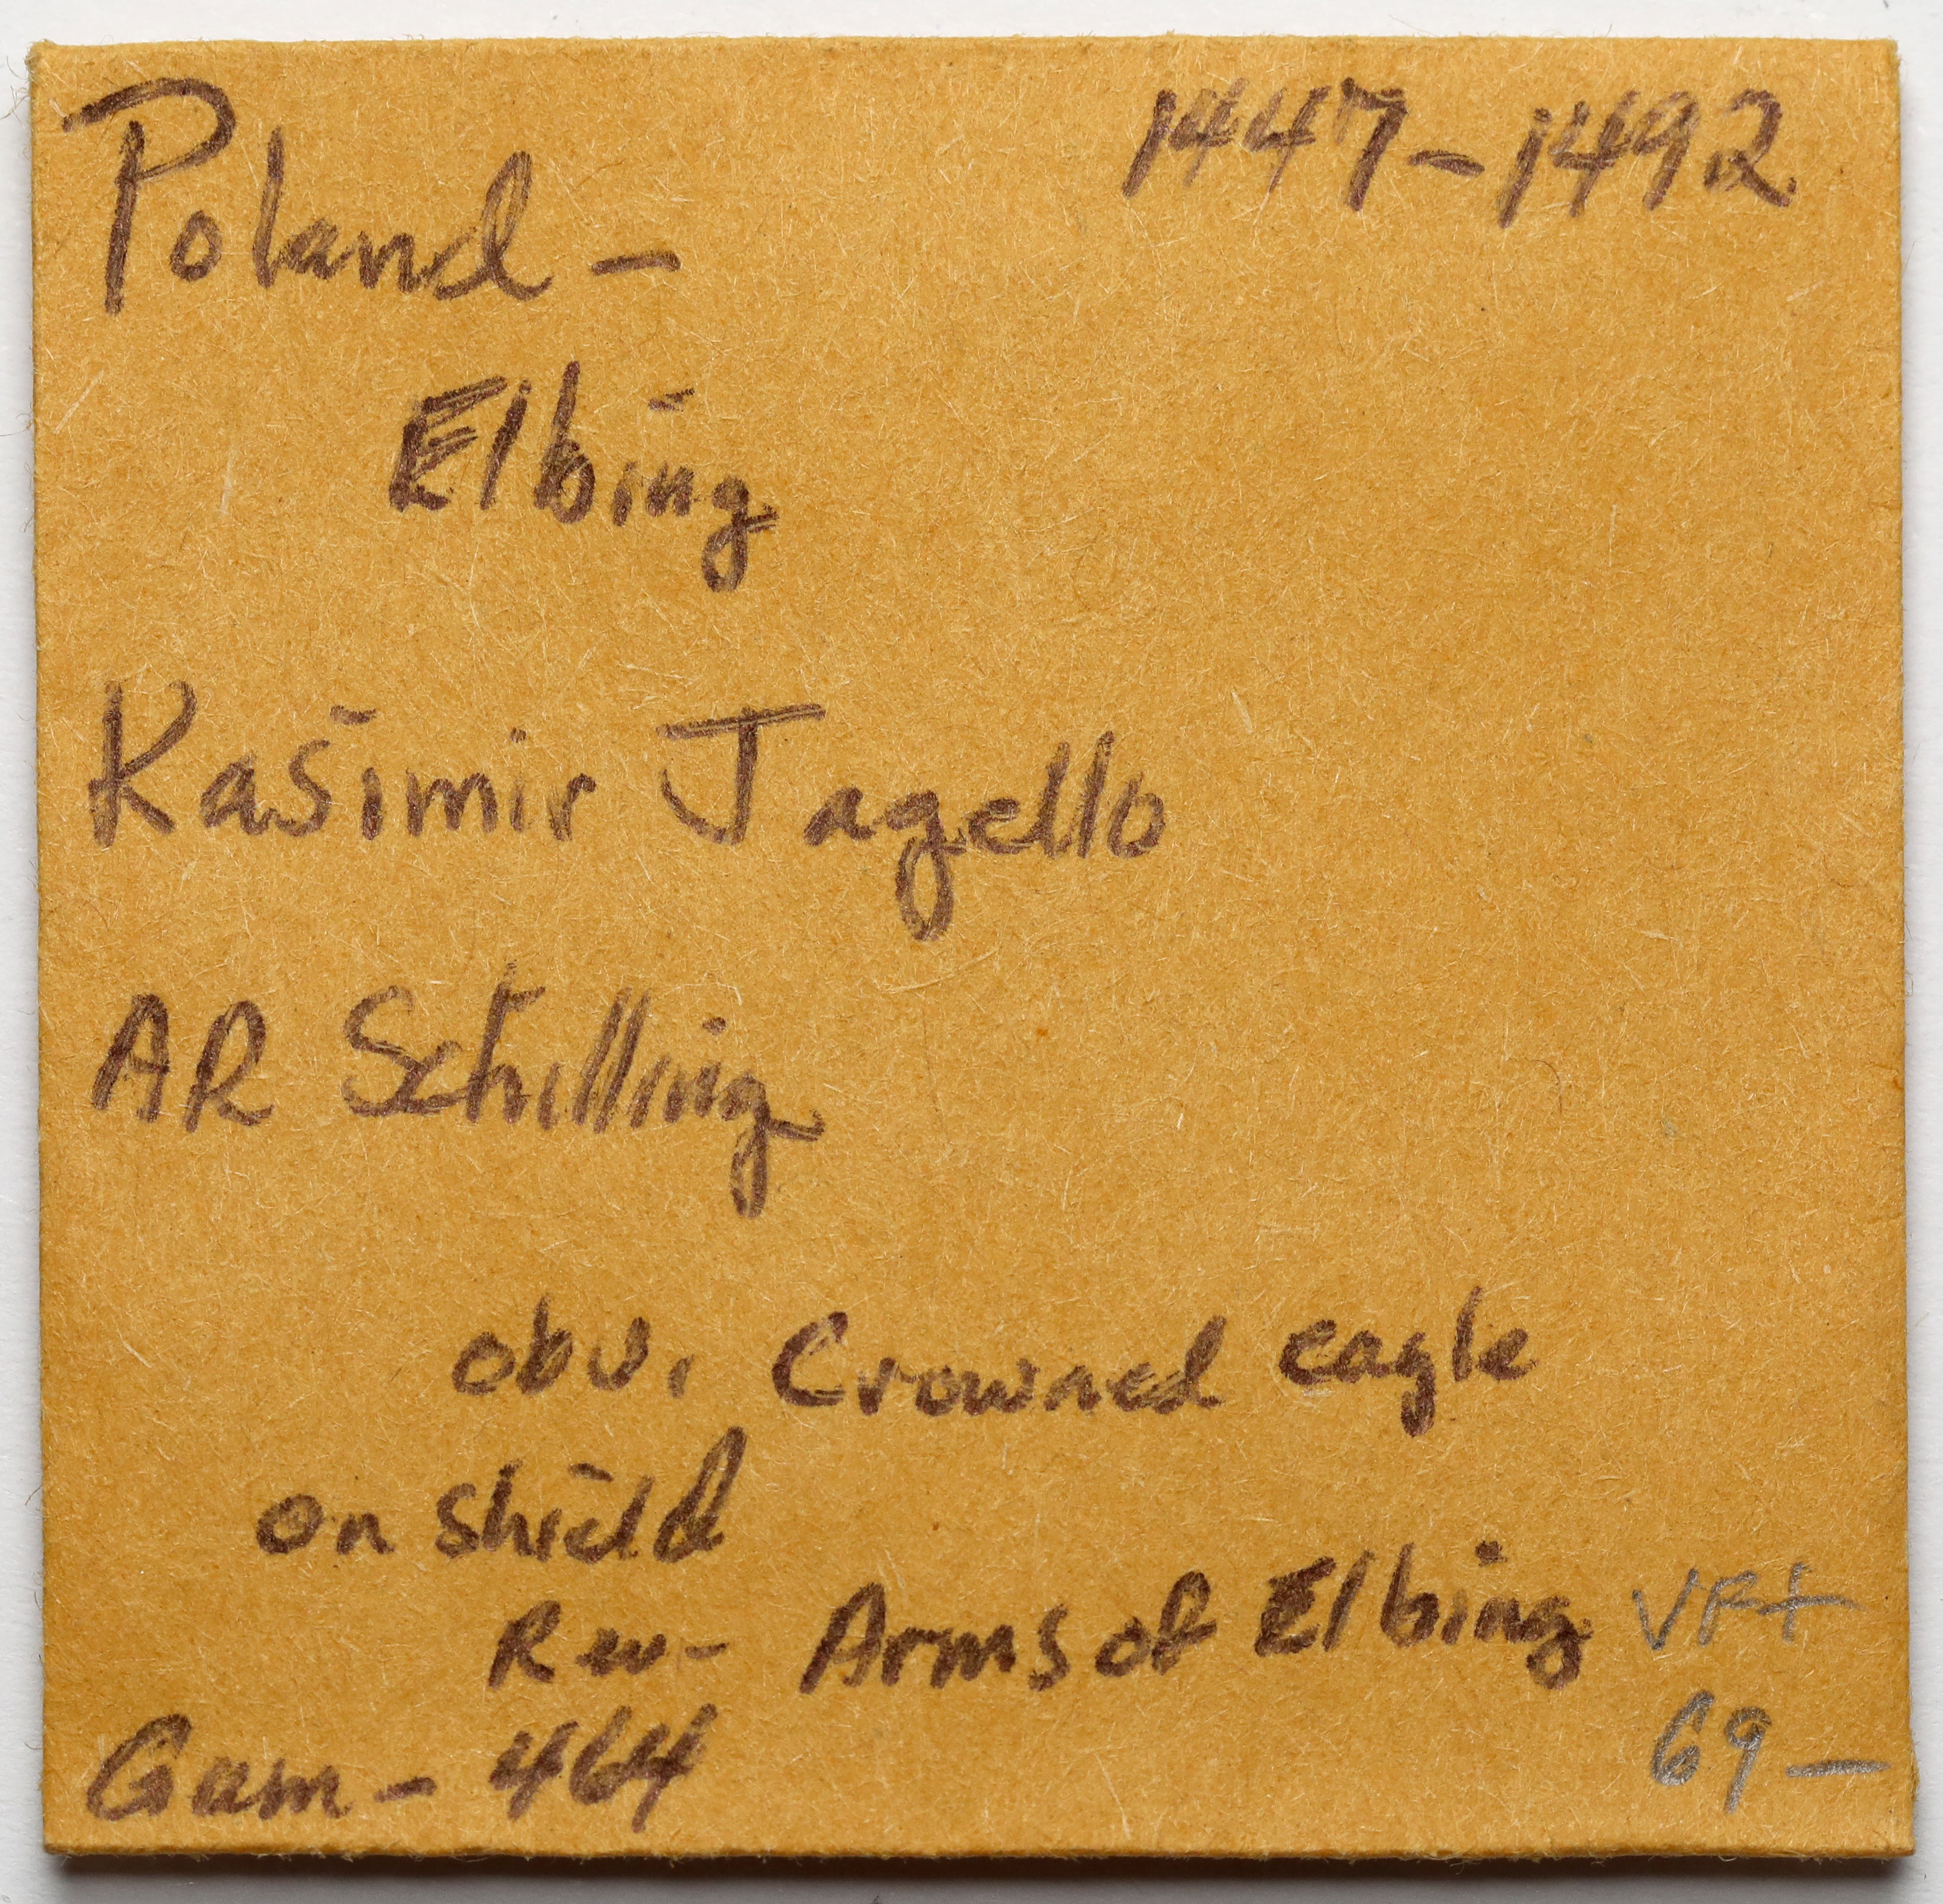 Poland - 1447-1492
Elbing
Kasimir Jagello
AR Schilling
obv. Crowned eagle
on shield
Rev- Arms of Elbing VF+
Gum - 464 69-